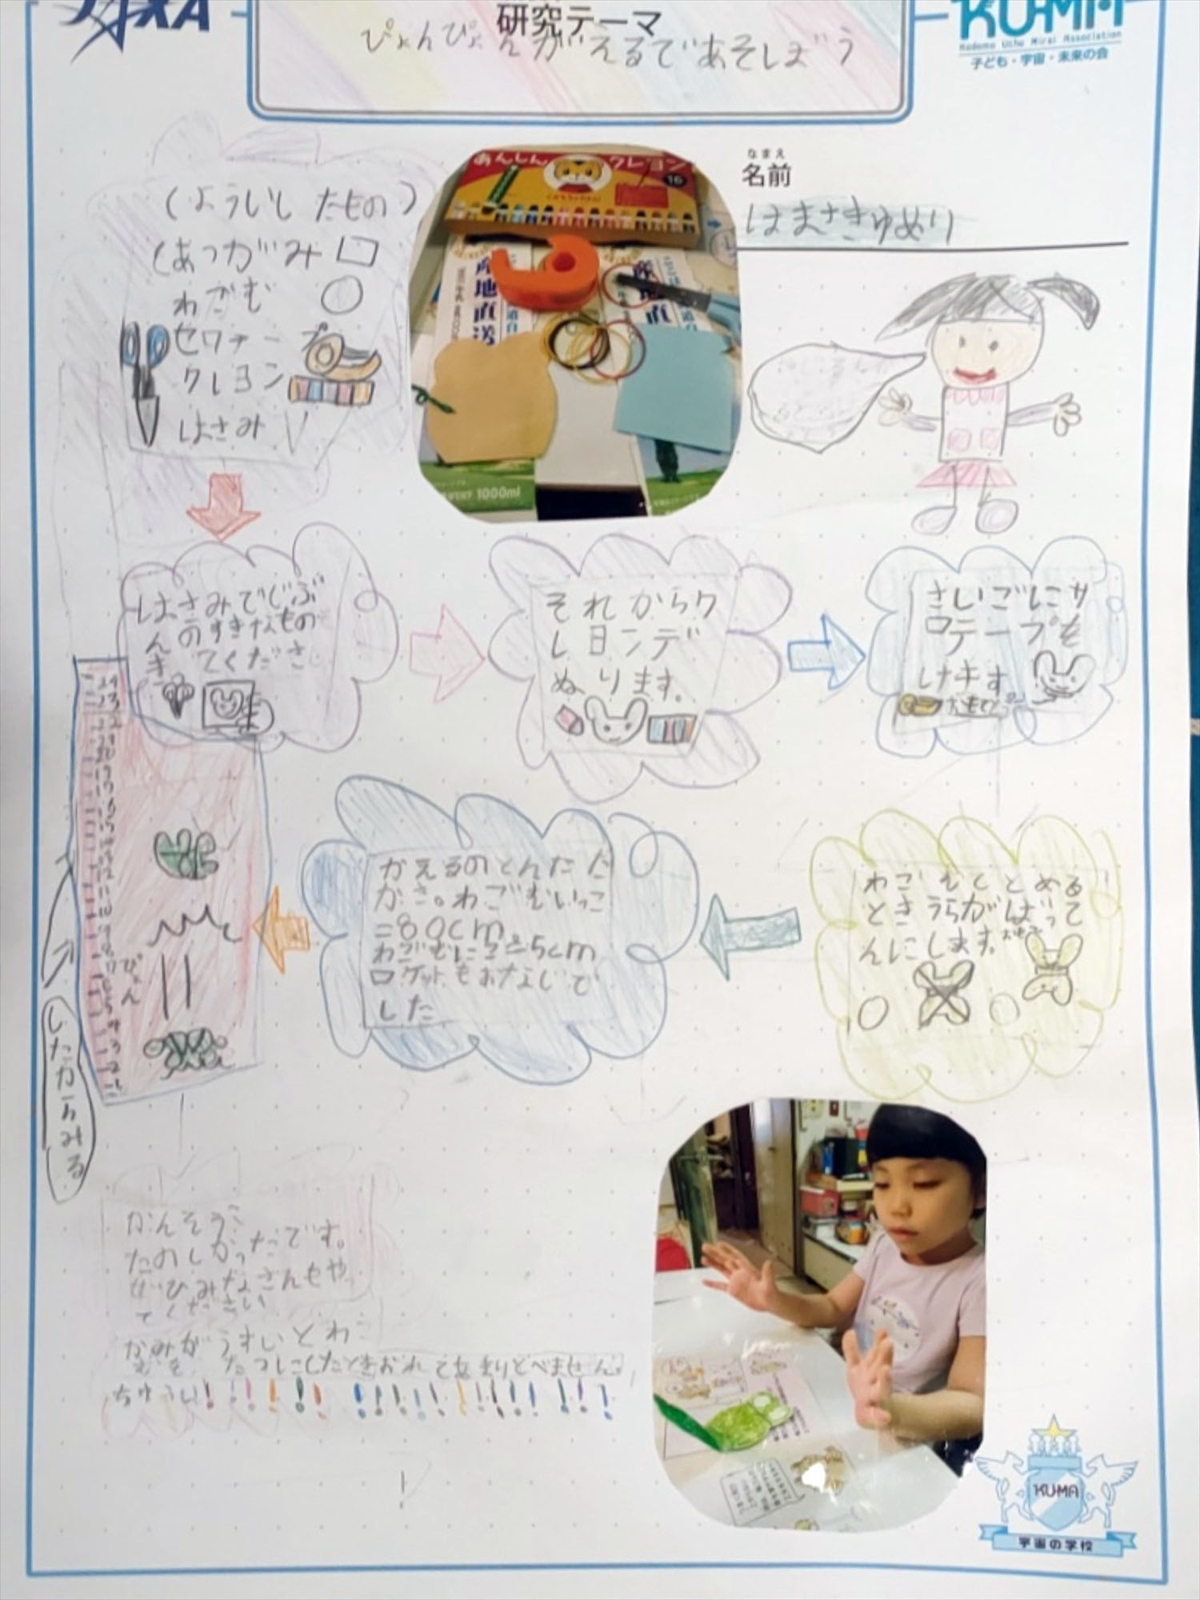 JAXA
研究テーマ
ぴょんぴょんがえるであそしぼう
KU-MA
Kodomo Uchu Mirai Association
子ども・宇宙・未来の会
なまえ
名前
はまさきゆめり
(よういし たもの)
(あつがみ
わごむ
セロテープ
クレヨン
はさみ
あんしん クレヨン
16
産地直送
産地直
1000ml
はさみでじぶ
んのすきなもの
きてくださ
それからク
レヨンデ
ぬります。
さいごにサ
ロテープを
けます
わごむをとめる
ときうらがばって
んにします。
かえるのとんだた
かさ。わごむいっこ
=80cm
わごむに2=5cm
ロケットもおなじで
した
ぴょん
したからみる
かんそう:
たのしかったです。
ぜひみなさんもや
てください
かみがうすいとわ
むを たつにしたときおれてあまりとべません。
ちゅうい!
KUMA
宇宙の学校